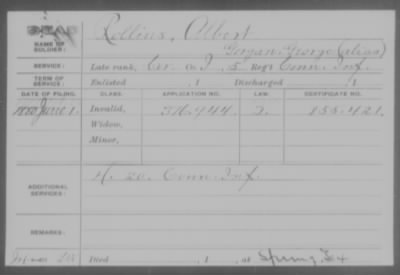 NAME OF SOLDIER: Rollins, Albert
Gorgan, George (alias)
SERVICE: Late rank, Co. I, 5 Reg't Conn. Inf.
TERM OF SERVICE: Enlisted , 1 Discharged , 1
DATE OF FILING. CLASS. APPLICATION NO. LAW. CERTIFICATE NO.
1880 June 1. Invalid, 376.944 155.421.
Widow,
Minor,
ADDITIONAL SERVICES: H. 20. Conn. Inf.
REMARKS:
Died , 1 , at